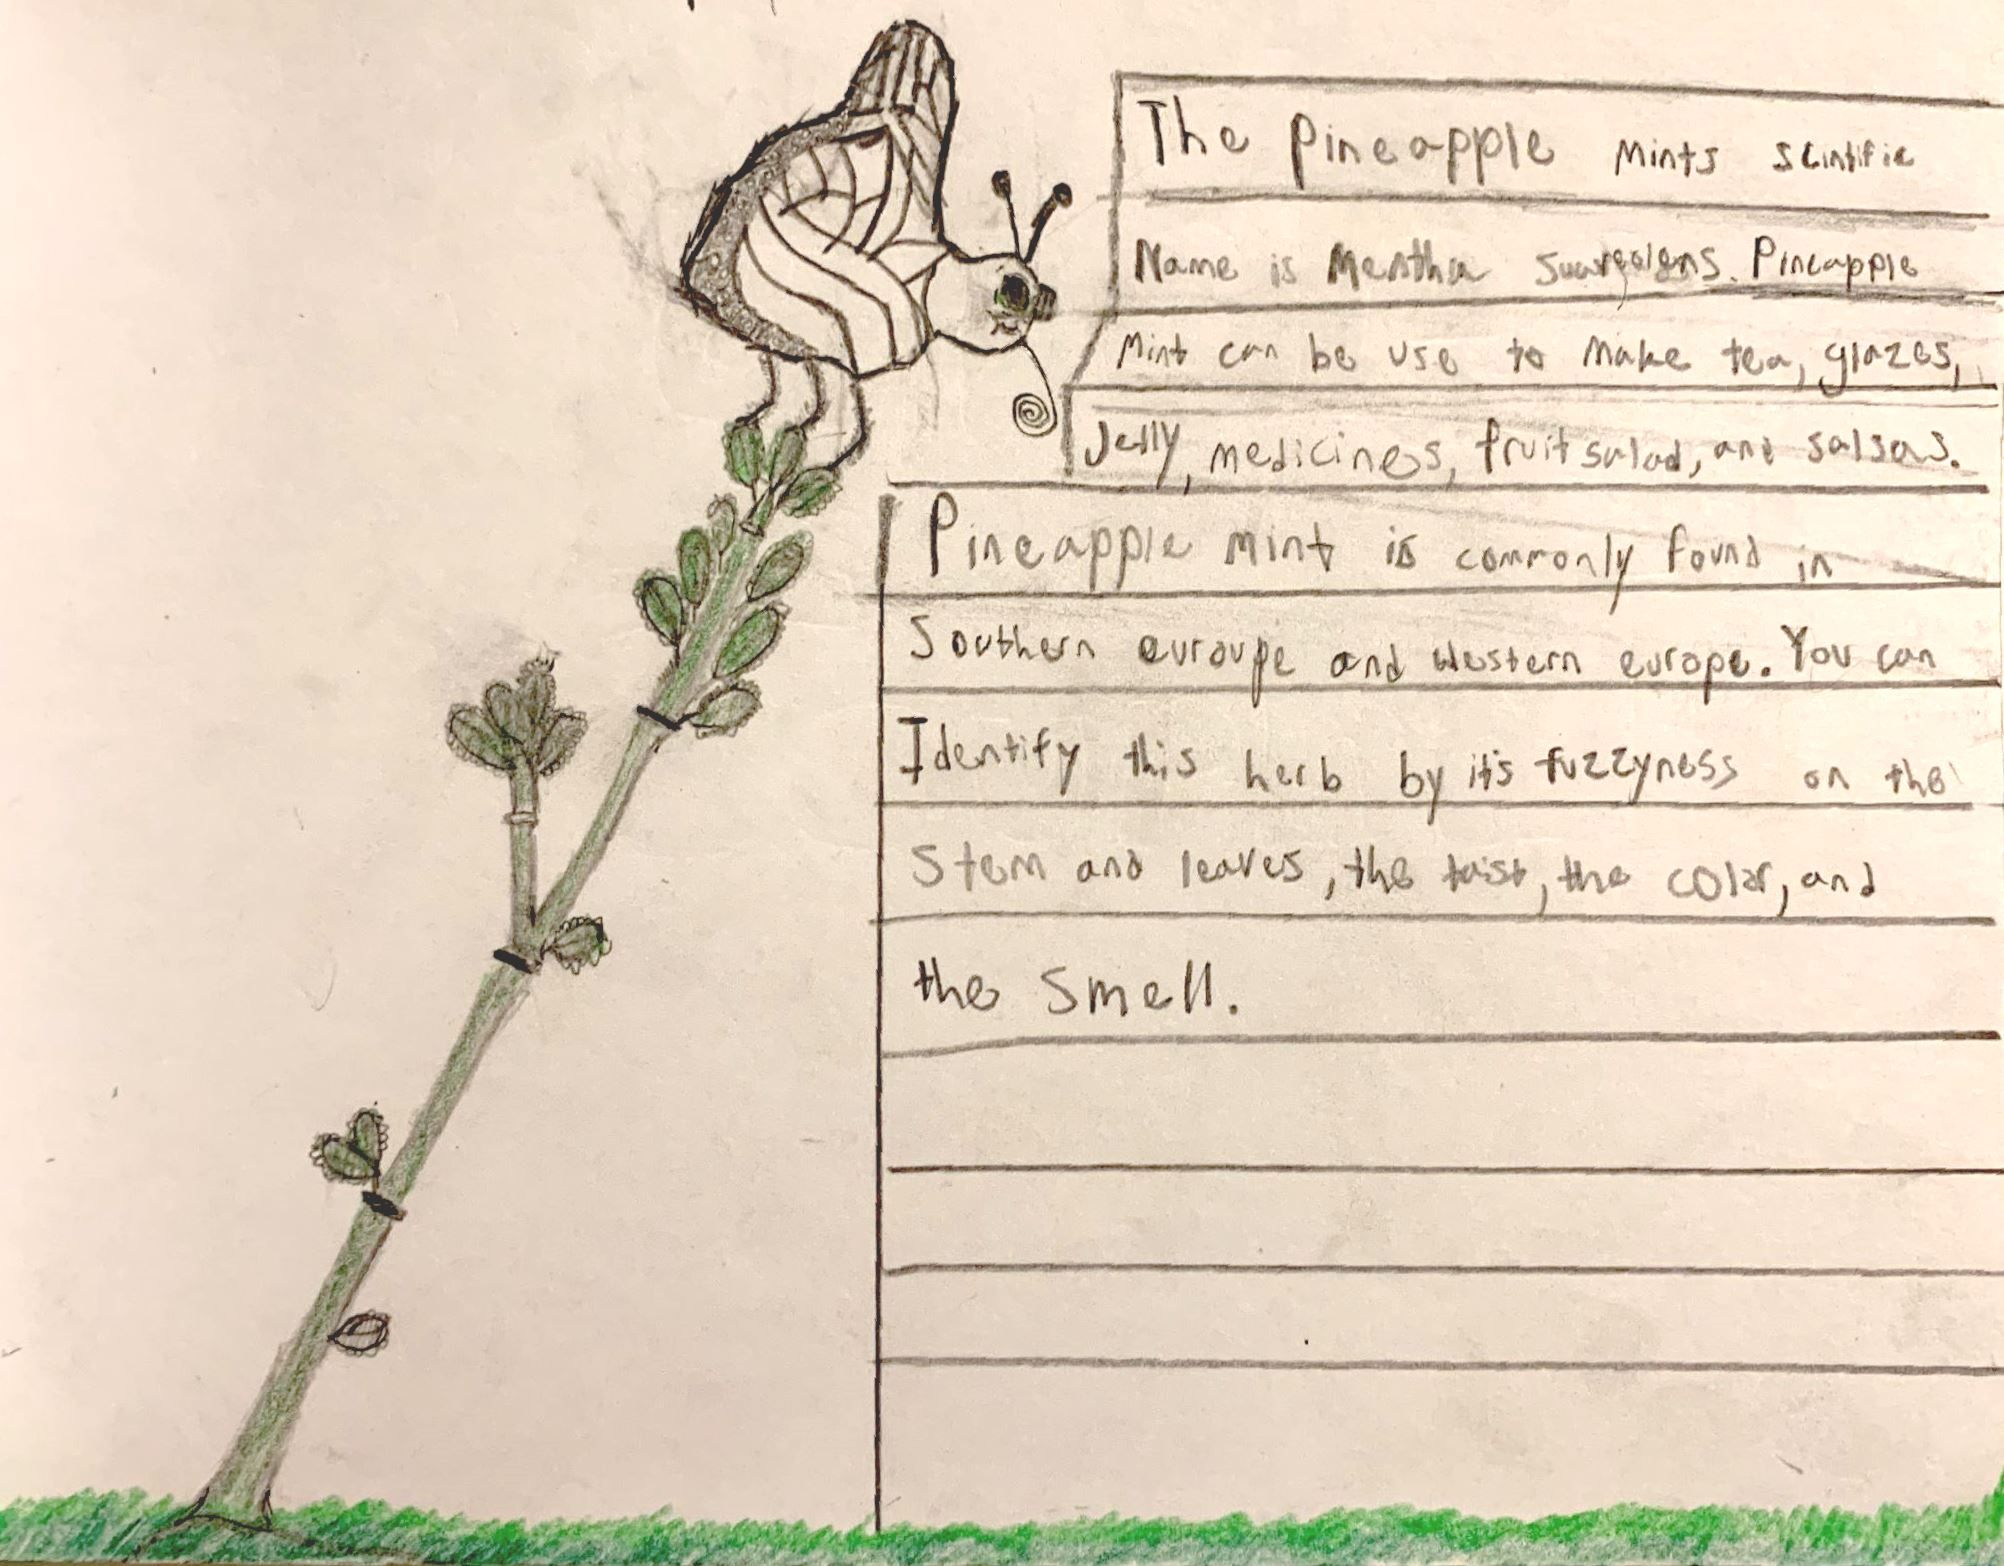 The Pineapple Mints scintific
Name is Mentha Suaveolens. Pineapple
Mint can be use to Make tea, glazes,
Jelly, medicines, fruit salad, and salsas.
Pineapple mint is commonly found in
Southern euroupe and western europe. You can
Identify this herb by it's fuzzyness on the
Stem and leaves, the taist, the color, and
the smell.